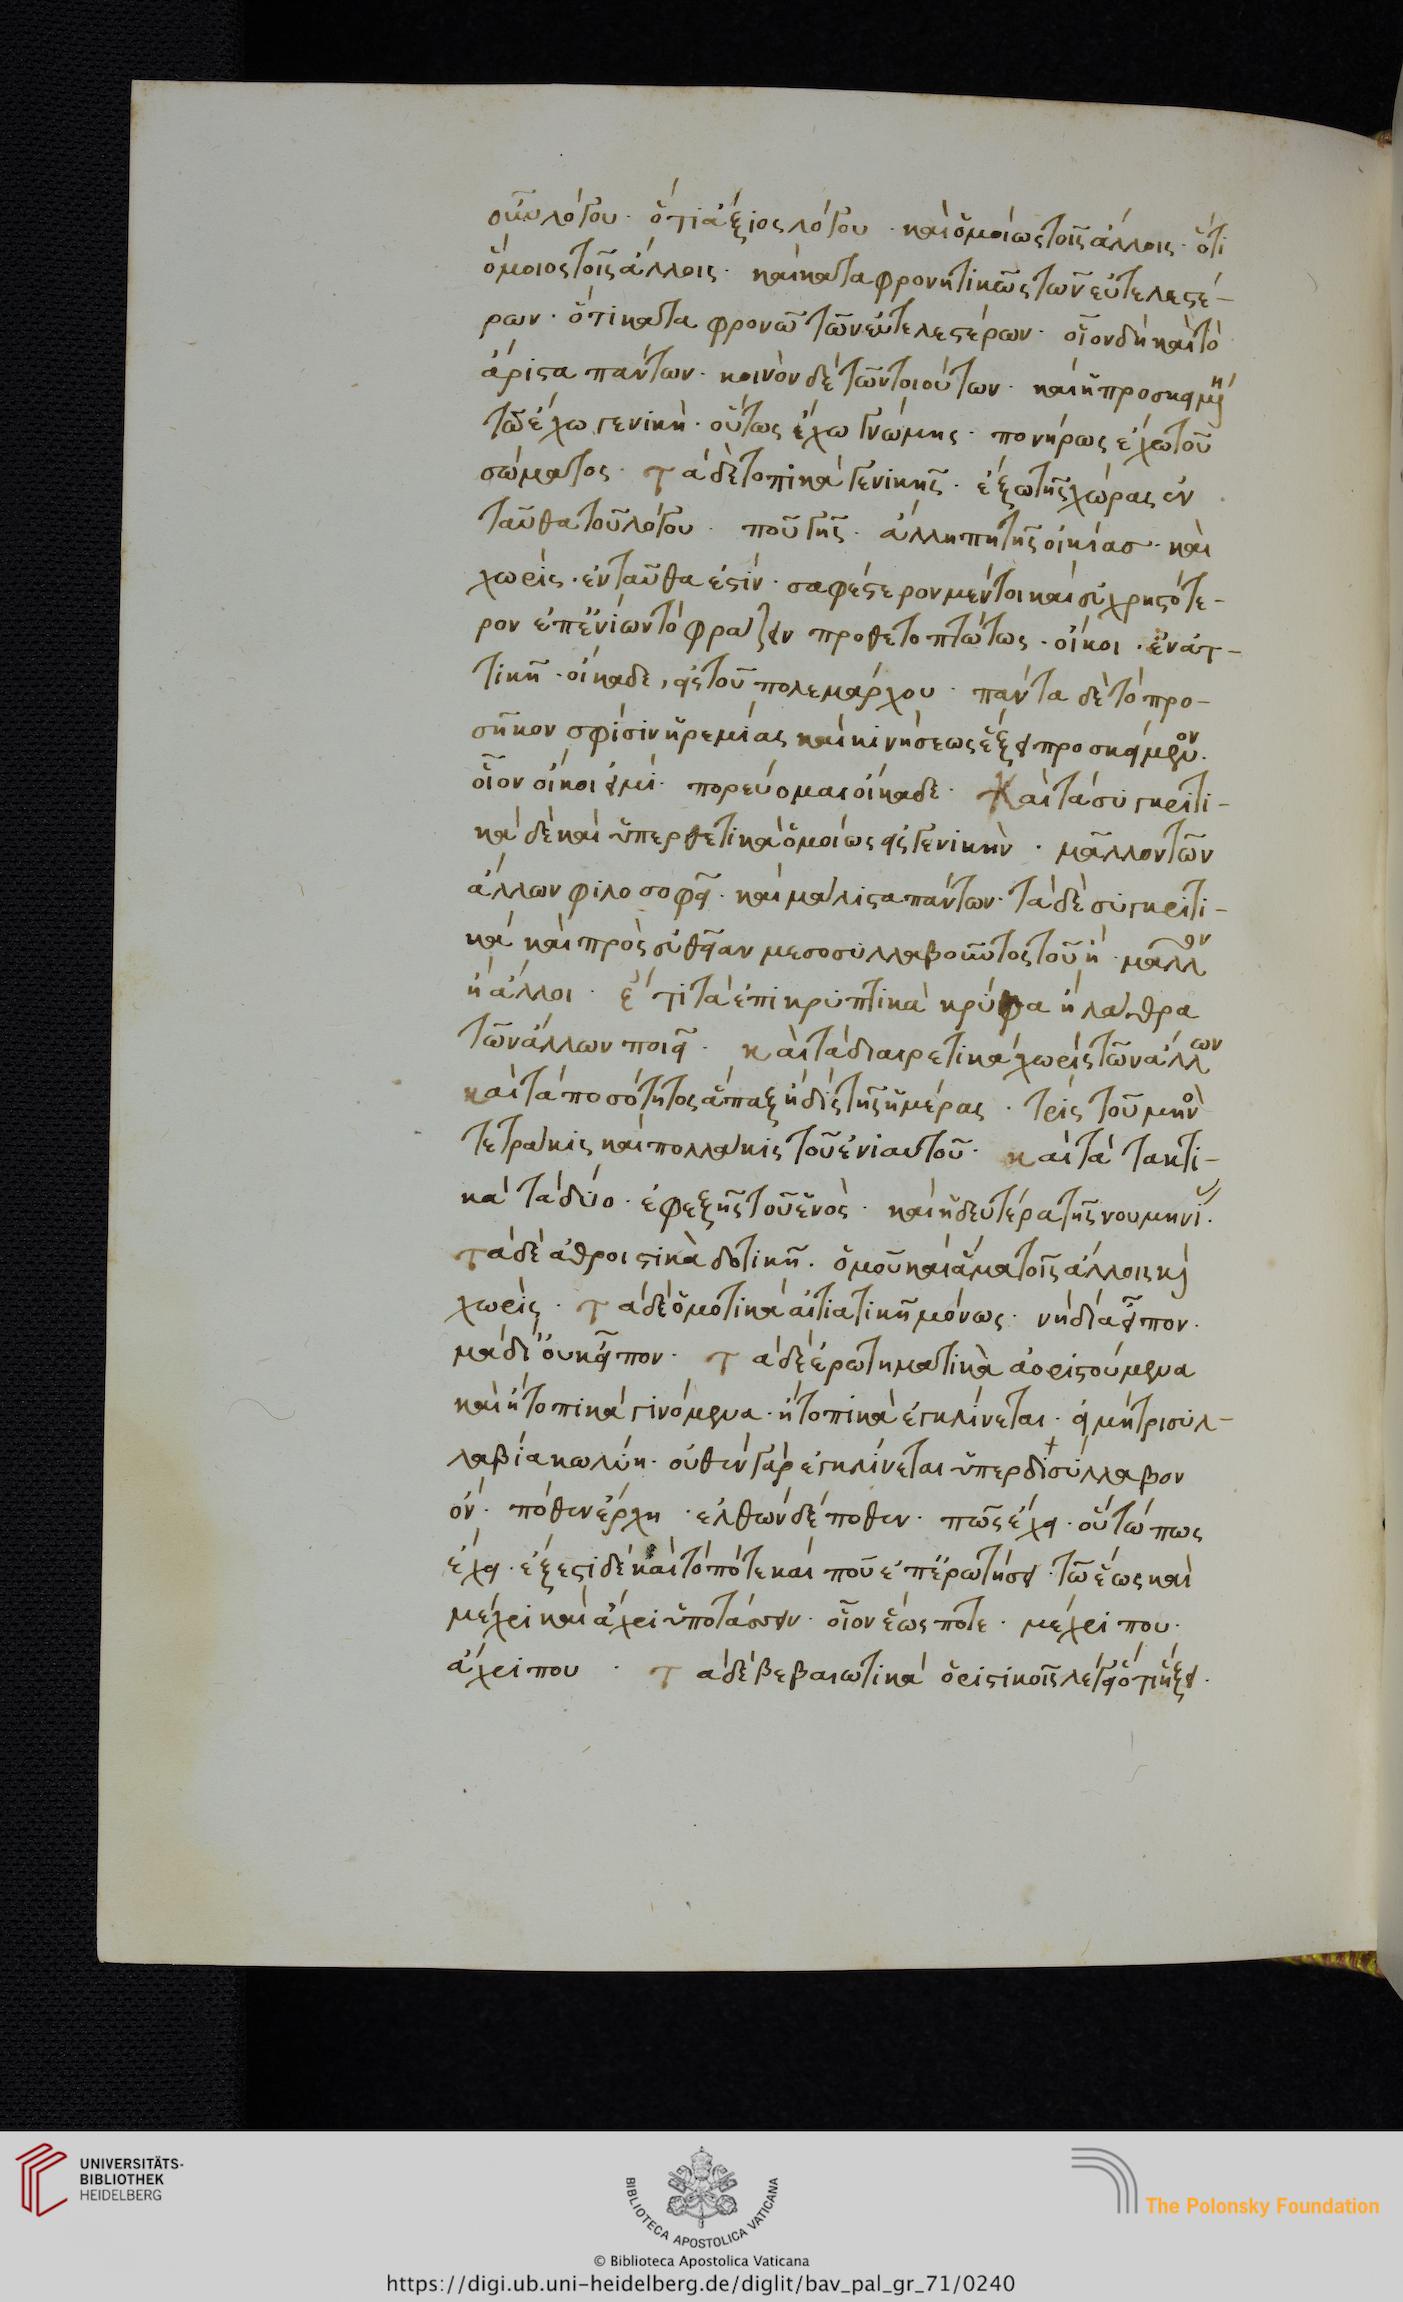 οῦν λόγου· ὅτι ἄξιος λόγου· καὶ ὁμοίως τοῖς ἄλλοις· ὅτι
ὅμοιος τοῖς ἄλλοις· καὶ καταφρονητικῶς τῶν εὐτελεστέ-
ρων· ὅτι καταφρονῶ τῶν εὐτελεστέρων· οἷον δὴ καὶ τὸ
ἄριστα πάντων· κοινὸν δὲ τῶν τοιούτων· καὶ ἡ προσκειμένη
τῶ ἔχω γενική· οὕτως ἔχω γνώμης· πονήρως ἔχω τοῦ
σώματος· τὰ δὲ τοπικὰ γενικῆς· ἔξω τῆς χώρας ἐν
ταῦθα τοῦ λόγου· ποῦ γῆς· ἄλλη πῃ τῆς οἰκίασ· καὶ
χωρίς· ἐνταῦθα ἐστίν· σαφέστερον μέντοι καὶ εὐχρηστότε-
ρον ἐπ' ἐνίων τὸ φράζειν προθετοπτώτως· οἴκοι· ἐν αἰτ-
τικῆ· οἴκαδε, εἰς τοῦ πολεμάρχου· πάντα δὲ τὸ προ-
σῆκον σφίσιν ἠρεμίας καὶ κινήσεως ἕξει προσκείμενον·
οἷον οἴκοι εἰμί· πορεύομαι οἴκαδε· Καὶ τὰ συγκριτι-
κὰ δὲ καὶ ὑπερθετικὰ ὁμοίως εἰς γενικήν· μᾶλλον τῶν
ἄλλων φιλοσοφεῖ· καὶ μάλιστα πάντων· τὰ δὲ συγκριτι-
κὰ καὶ πρὸς εὐθεῖαν μεσοσυλλαβοῦντος τοῦ ἢ· μᾶλλον
ἢ ἄλλοι· ἔτι τὰ ἐπικρυπτικὰ κρύφα ἢ λάθρα
τῶν ἄλλων ποιεῖ· καὶ τὰ διαιρετικὰ χωρὶς τῶν ἄλλων
καὶ τὰ ποσότητος ἅπαξ ἢ δὶς τῆς ἡμέρας· τρὶς τοῦ μηνὸς
τετράκις καὶ πολλάκις τοῦ ἐνιαυτοῦ· καὶ τὰ τακτι-
κὰ τὰ δύο· ἐφεξῆς τοῦ ἑνὸς· καὶ ἡ δευτέρα τῆς νουμηνίας·
τὰ δὲ ἀθροιστικὰ δοτικῆ· ὁμοῦ καὶ ἅμα τοῖς ἄλλοις καὶ
χωρίς· τὰ δὲ ὀμοτικὰ αἰτιατικῆ μόνως· νὴ δία εἶπον·
μὰ δί' οὐκ εἶπον· τὰ δὲ ἐρωτηματικὰ ἀοριστούμενα
καὶ ἢ τοπικὰ γινόμενα· ἢ τοπικὰ ἐγκλίνεται· εἰ μὴ τρισυλ-
λαβία κωλύη· οὐθὲν γὰρ ἐγκλίνεται ὑπερδισύλλαβον
ὄν· πόθεν ἔρχη· ἐλθὼν δέ ποθεν· πῶς ἔχει· οὕτω πως
ἔχει· ἔξεστι δὲ καὶ τὸ πότε καὶ ποῦ ἐπ' ἐρωτήσει· τῶ ἕως καὶ
μέχρι καὶ ἄχρι ὑποτάσσειν· οἷον ἕως ποτε· μέχρι που·
ἄχρι που· τὰ δὲ βεβαιωτικὰ ὁριστικοῖς λέγει ὅτι ἥξει·
UNIVERSITÄTS-
BIBLIOTHEK
HEIDELBERG
BIBLIOTECA APOSTOLICA VATICANA
The Polonsky Foundation
© Biblioteca Apostolica Vaticana
https://digi.ub.uni-heidelberg.de/diglit/bav_pal_gr_71/0240